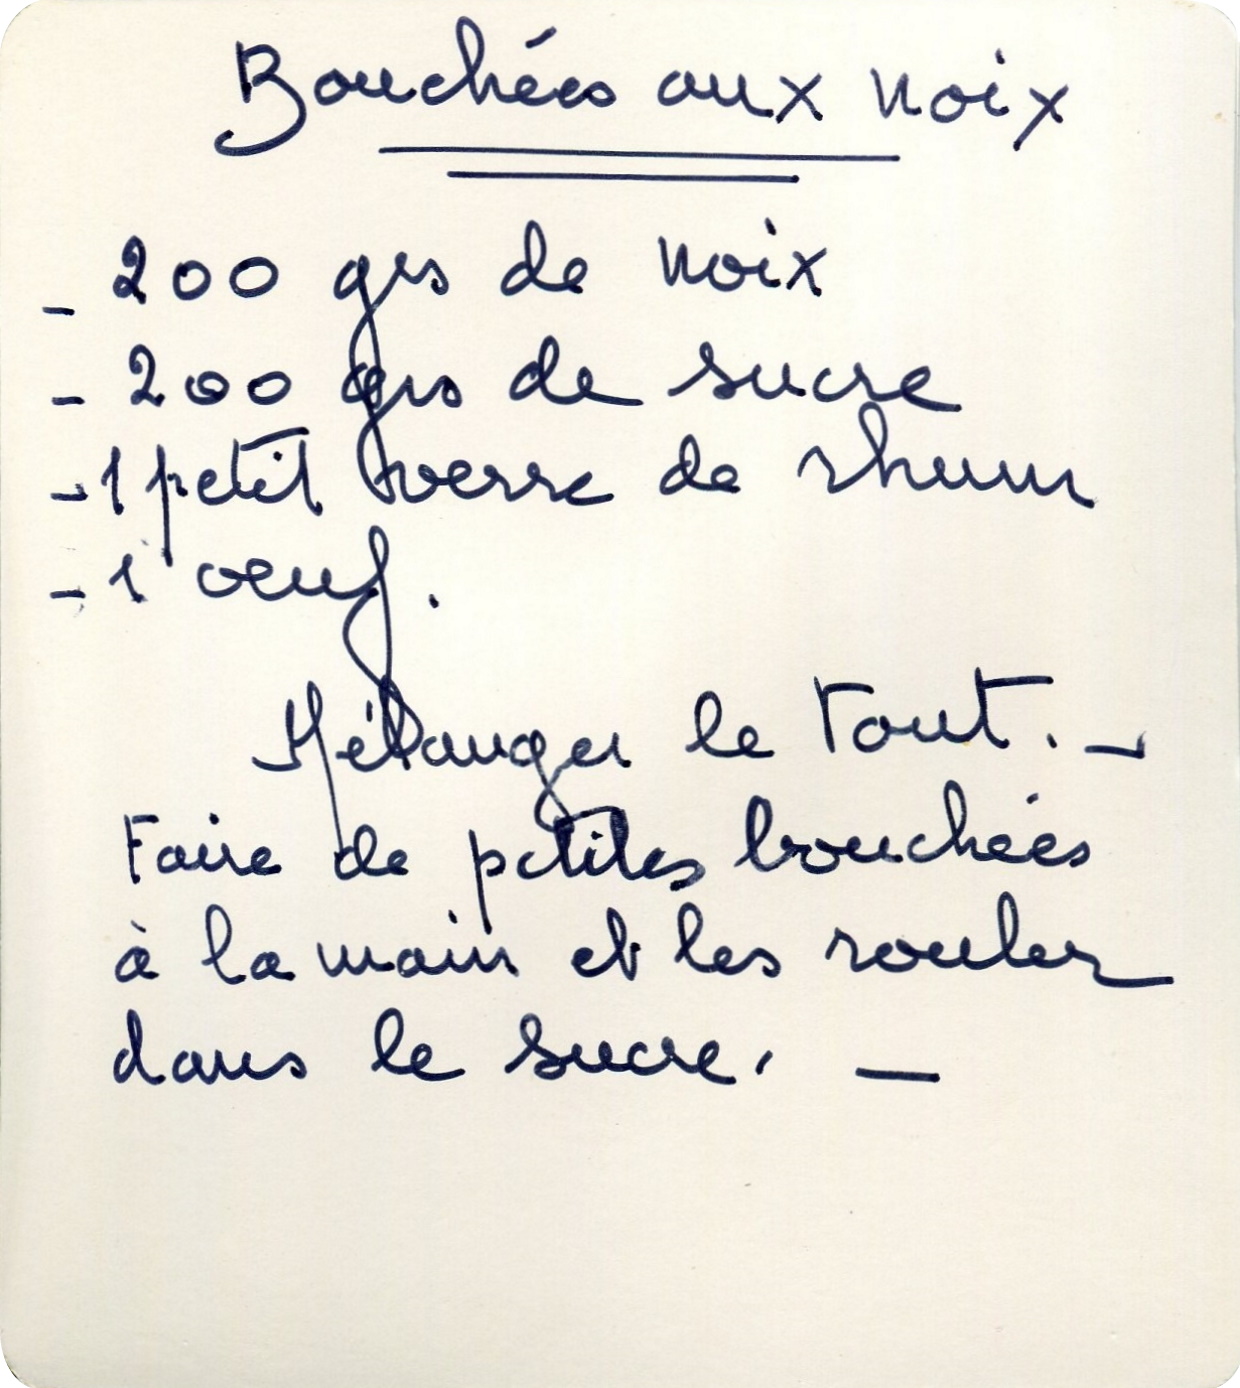 Bouchées aux noix
- 200 grs de noix
- 200 grs de sucre
- 1 petit verre de rhum
- 1 oeuf.
Mélanger le tout. -
Faire de petites bouchées
à la main et les rouler
dans le sucre. -